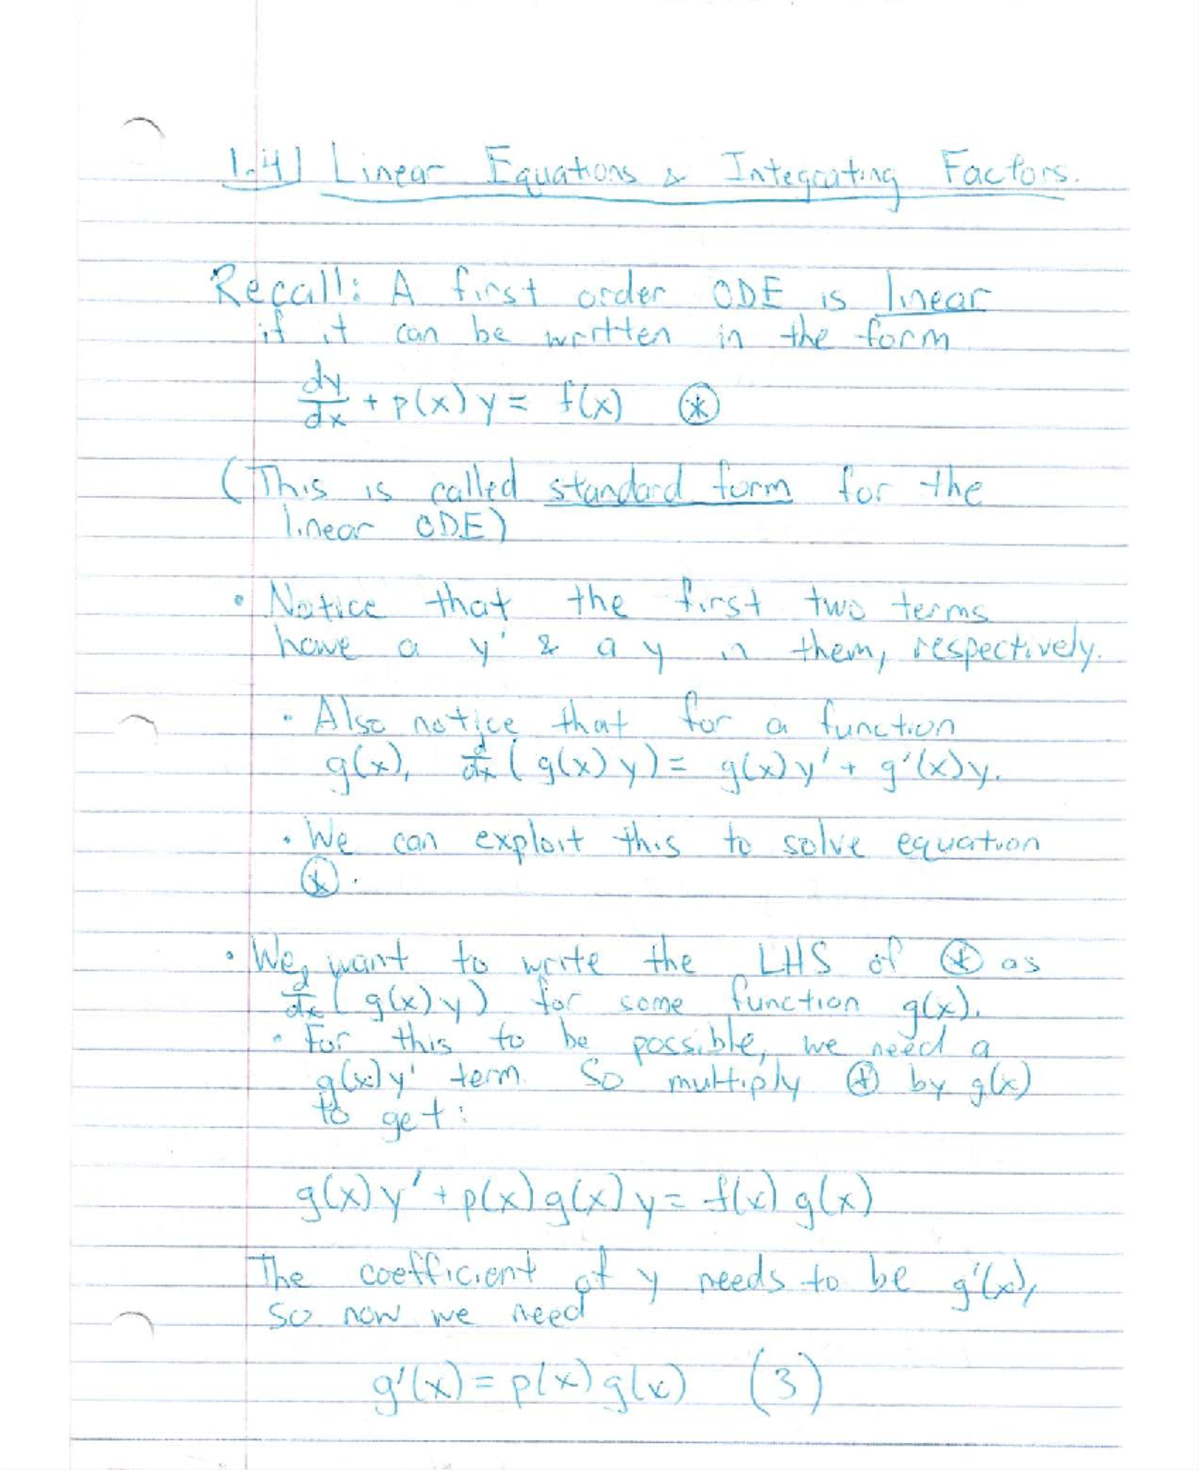 1.4) Linear Equations & Integrating Factors.
Recall: A first order ODE is linear
if it can be written in the form
dy/dx + p(x) y = f(x) ⊛
(This is called standard form for the
linear ODE)
• Notice that the first two terms
have a y' & a y in them, respectively.
• Also notice that for a function
g(x), d/dx (g(x) y) = g(x) y' + g'(x) y.
• We can exploit this to solve equation
⊛.
• We want to write the LHS of ⊛ as
d/dx (g(x) y) for some function g(x).
• For this to be possible, we need a
g(x) y' term. So multiply ⊛ by g(x)
to get:
g(x) y' + p(x) g(x) y = f(x) g(x)
The coefficient of y needs to be g'(x),
so now we need
g'(x) = p(x) g(x) (3)